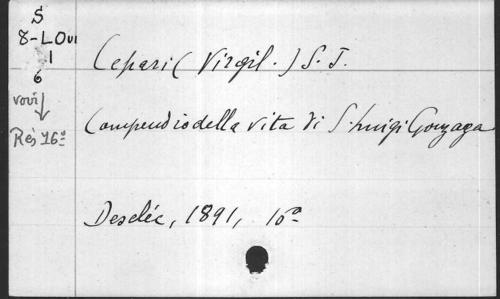 S
8-LOui
1
6
vovi
Rés 16°
Cepari (Virgil.) S.J.
Compendio della vita di S. Luigi Gonzaga
Desclée, 1891, 10°